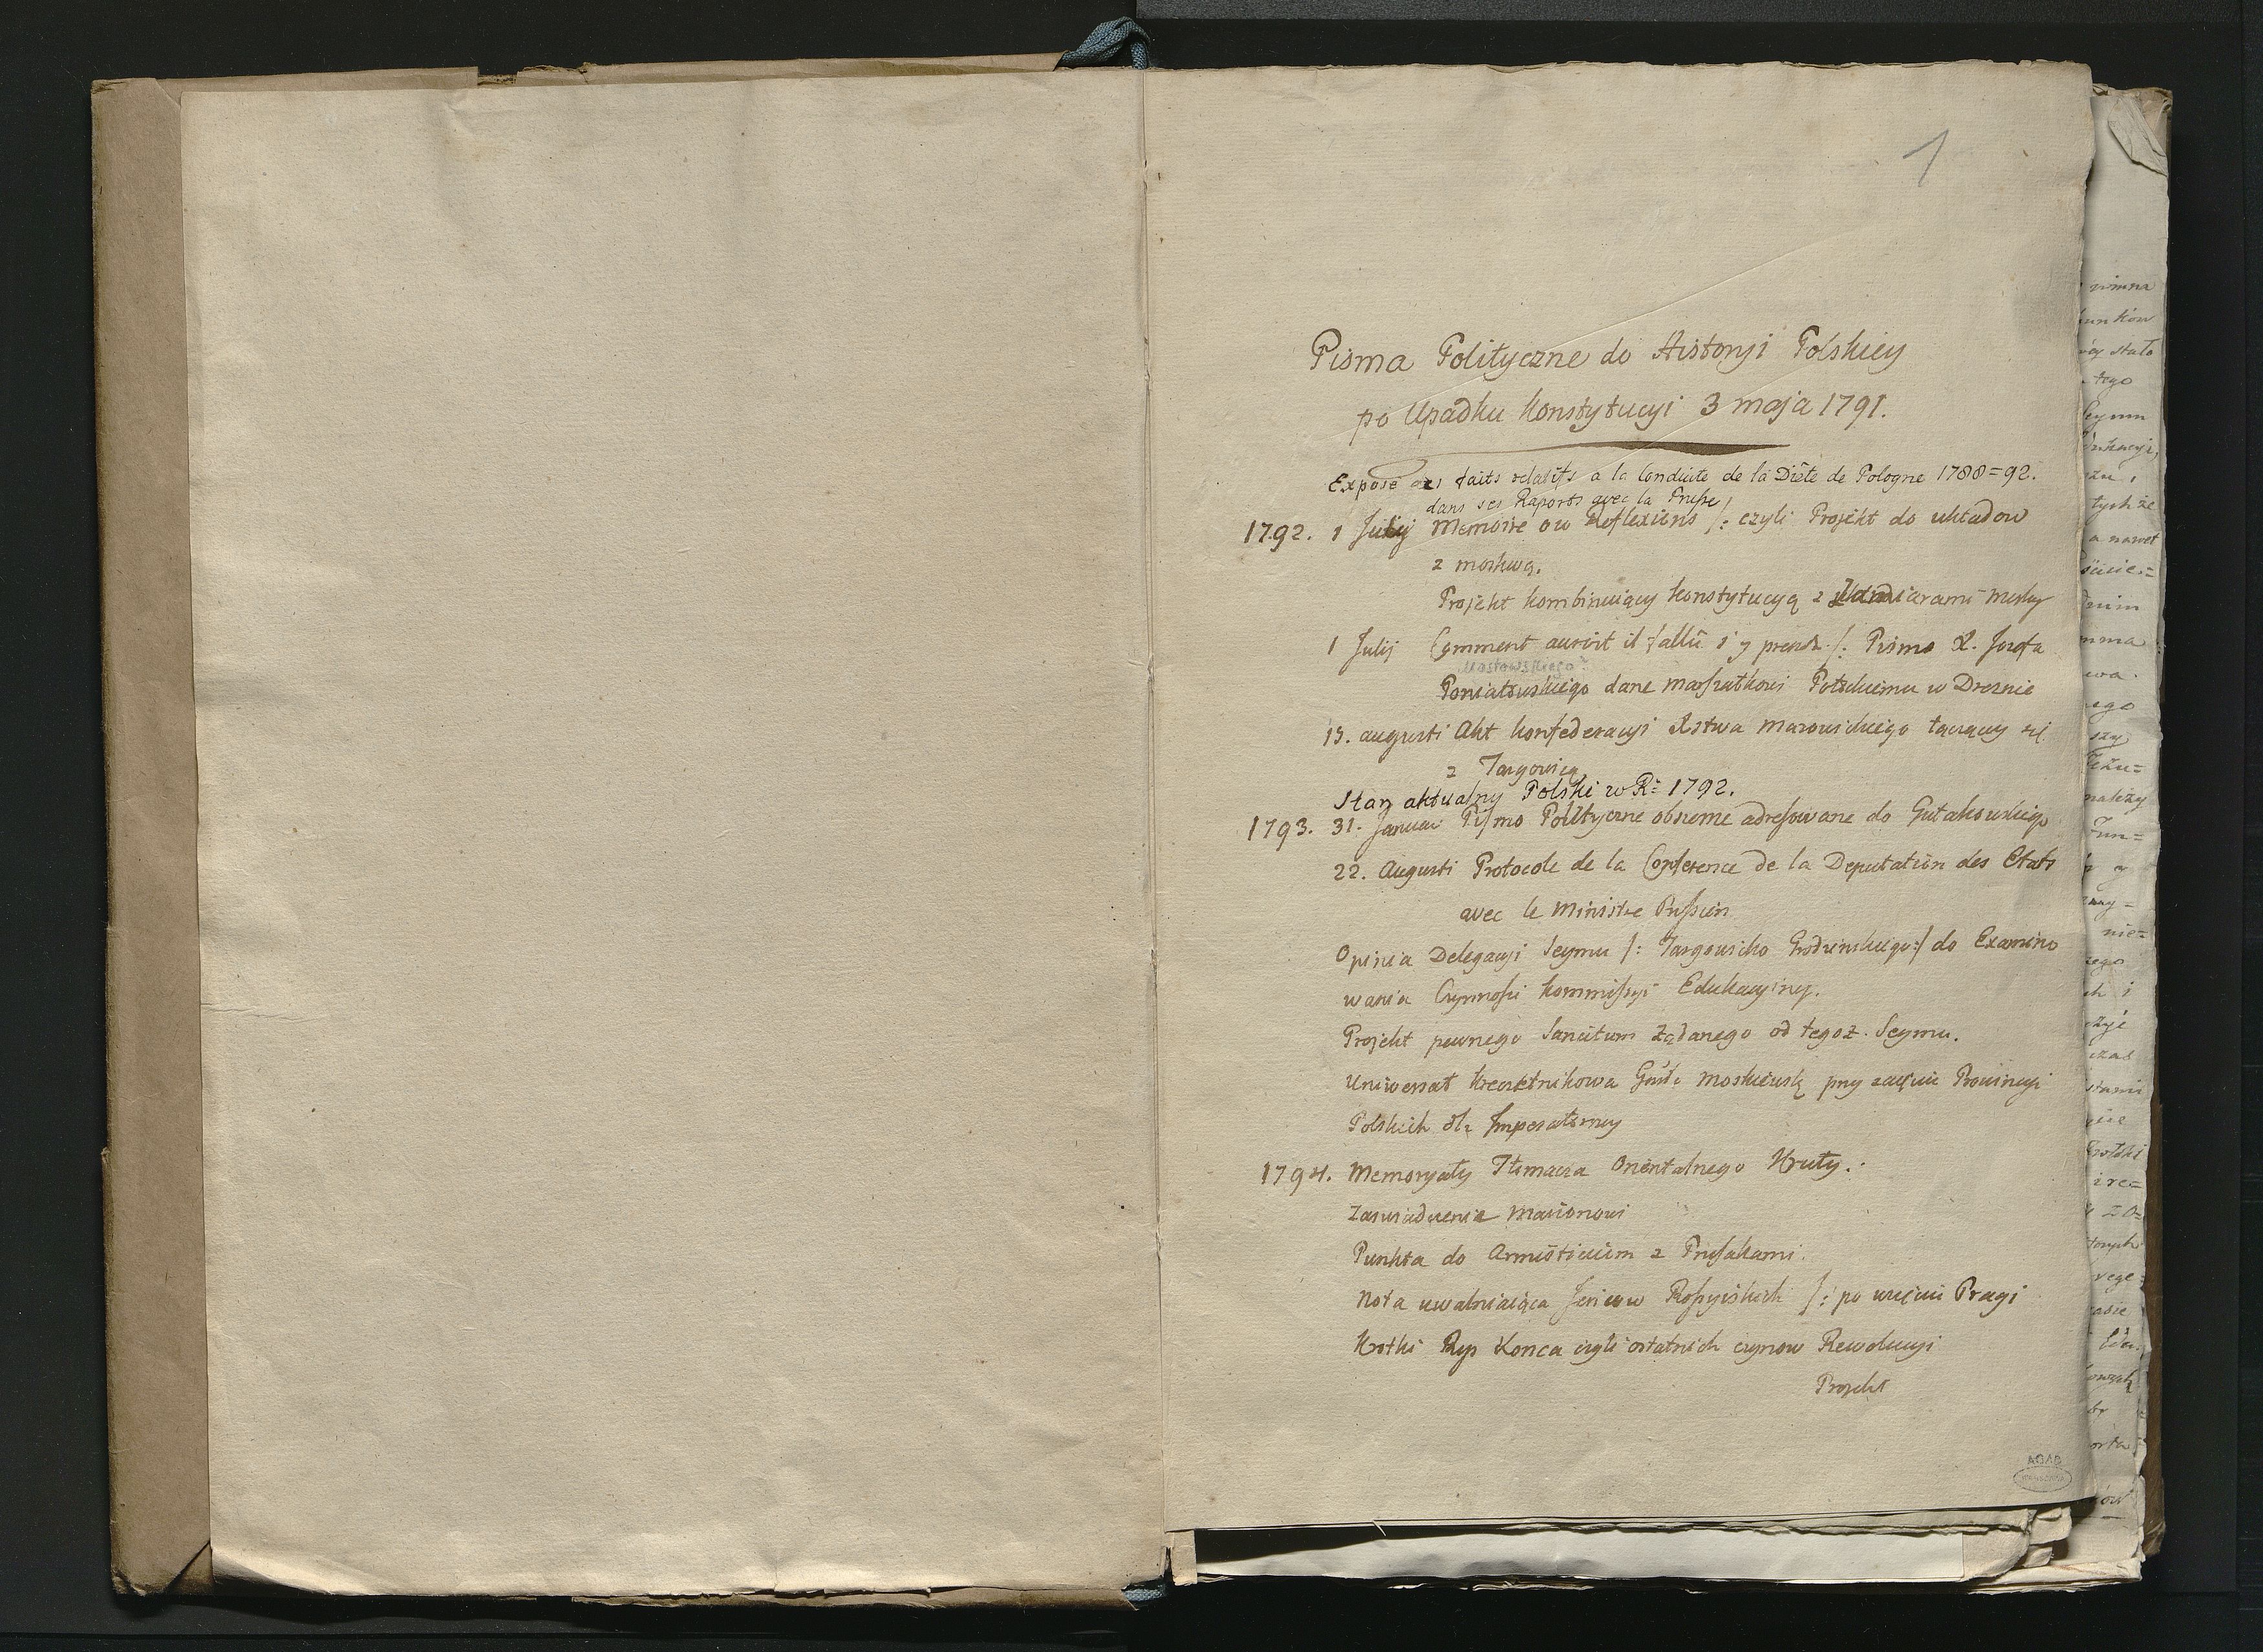 1
Pisma Polityczne do Historyi Polskiey
po Upadku Konstytucyi 3 maja 1791.
Exposé des faits relatifs a la Conduite de la Diète de Pologne 1788=92.
dans ses Raports avec la Prusse
1792. 1 July Memoire ou Reflexions /: czyli Projekt do układow
z moskwą.
Projekt kombinuiący Konstytucyą z Zamiarami Moskwy
1 Julij Comment auroit il fallu s'y prendre /: Pismo X. Jozefa
Poniatowskiego dane Marszałkowi Potockiemu w Dreznie
15. augusti Akt konfederacyi Xstwa Mazowieckiego łączący się
z Targowicą
Stan aktualny Polski w R= 1792.
1793. 31. Januar Pismo Polityczne obszerne adressowane do Gutakowskiego
22. Augusti Protocole de la Conference de la Deputation des Etats
avec le Ministre Prussien
Opinia Delegacyi Seymu /: Targowicko Grodzinskiego :/ do Examino
wania Czynności Kommissyi Edukacyiney.
Projekt pewnego Sancitum żądanego od tegoż Seymu.
Uniwersał Kreczetnikowa Moskiewską przy zajęciu Prowincyi
Polskich dla Imperatorowy
1794. Memoryały Tłomacza Orientalnego Kruty.
Zaswiadczenie Marionowi
Punkta do Armisticium z Prusakami.
Nota uwalniaiąca Jencow Rossyiskich /: po wzięciu Pragi
Krotki Rys Konca czyli ostatnich czynow Rewolucyi
Projekt
AGAD
WARSZAWA
winna
unkow
stało
tego
eymu
tychże
a nawet
nim
ego
szy
należy
nie=
i
zas
ire=
zo=
asie
ow